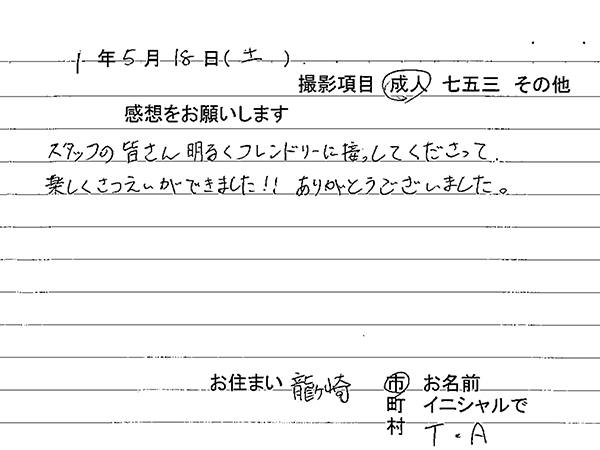 1年5月18日(土)
撮影項目 成人 七五三 その他
感想をお願いします
スタッフの皆さん明るくフレンドリーに接っしてくださって、
楽しくさつえいができました!! ありがとうございました。
お住まい 龍ヶ崎 市 お名前
町 イニシャルで
村 T.A